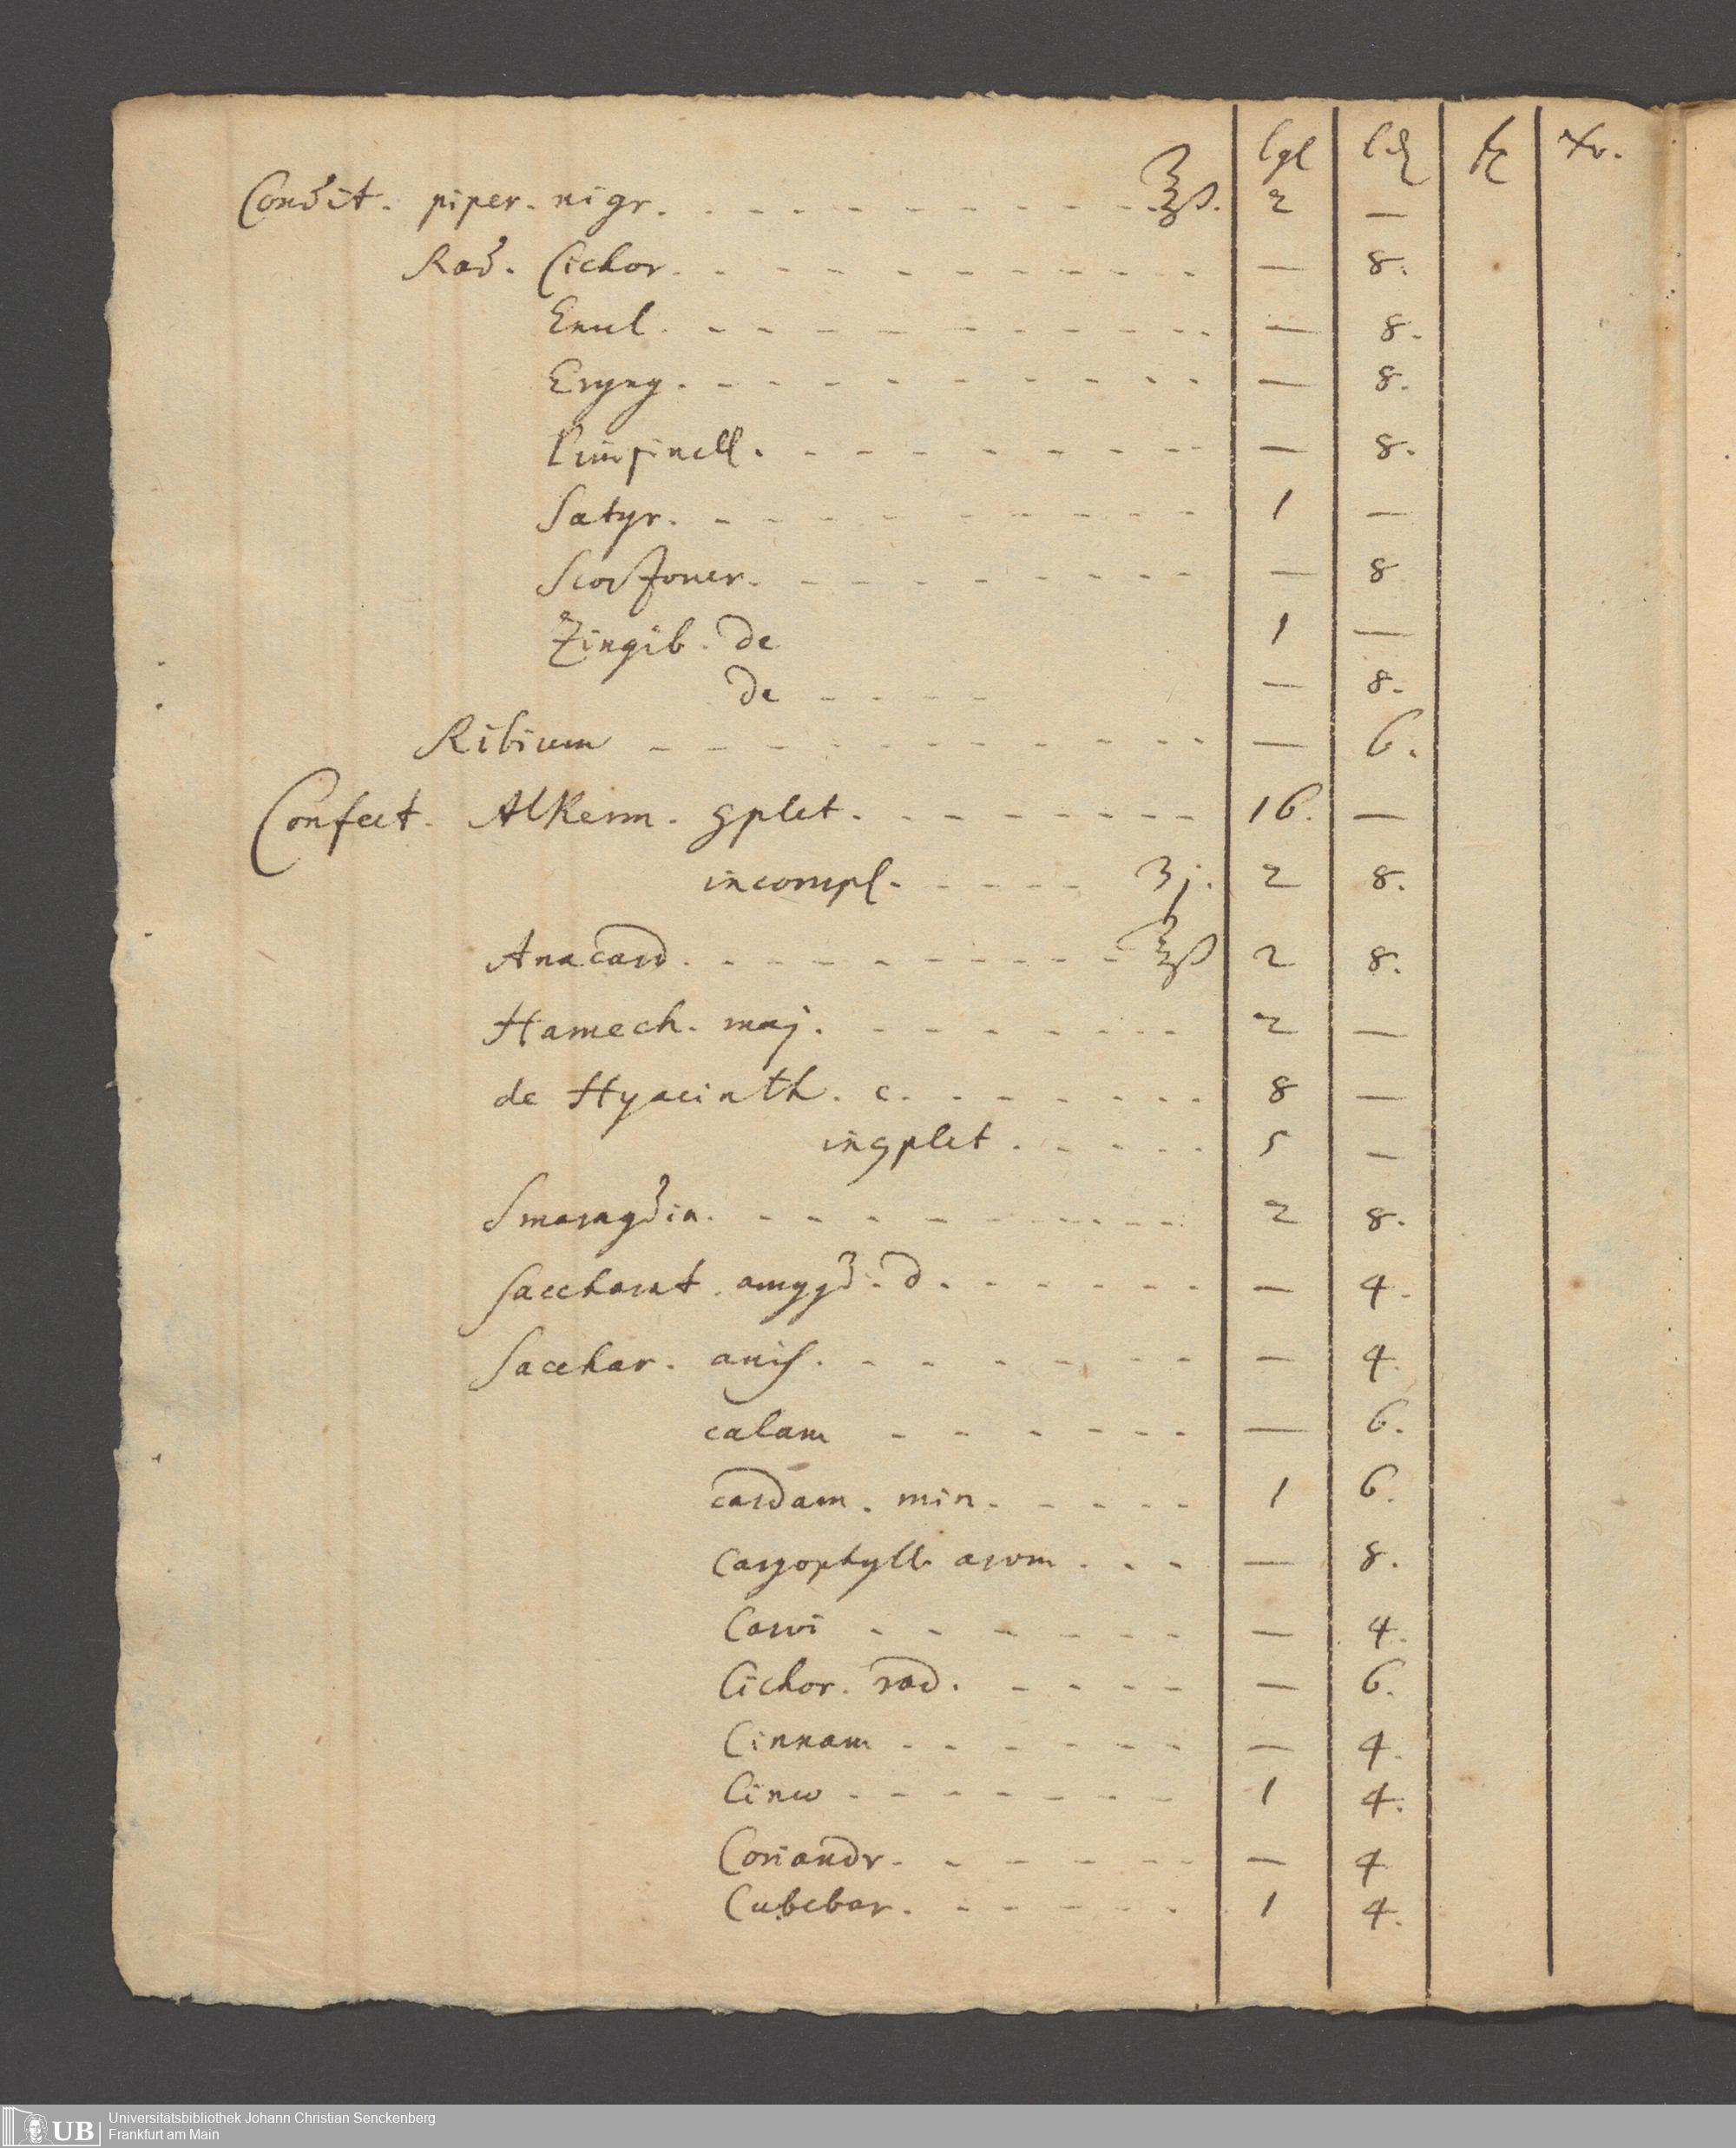 lgl
Condit. piper. nigr. ℥ß. 2 —
Rad. Cichor. — 8.
Enul. — 8.
Eryng. — 8.
Pimpinell. — 8.
Satyr. 1 —
Scorzoner. — 8
Zingib. de 1 —
de — 8.
Ribium — 6.
Confect. Alkerm. gplet. 16. —
incompl. ʒj. 2 8.
Anacard. ℥ß 2 8.
Hamech. maj. 2 —
de Hyacinth. c. 8 —
ingplet. 5 —
Smaragdin. 2 8.
Saccharat. amygd. d. — 4.
Sacchar. anis. — 4.
calam — 6.
cardam. min. 1 6.
Caryophyll. arom. — 8.
Carvi — 4.
Cichor. rad. — 6.
Cinnam — 4.
Cinæ 1 4.
Coriandr. — 4
Cubebar. 1 4.
UB Universitätsbibliothek Johann Christian Senckenberg
Frankfurt am Main